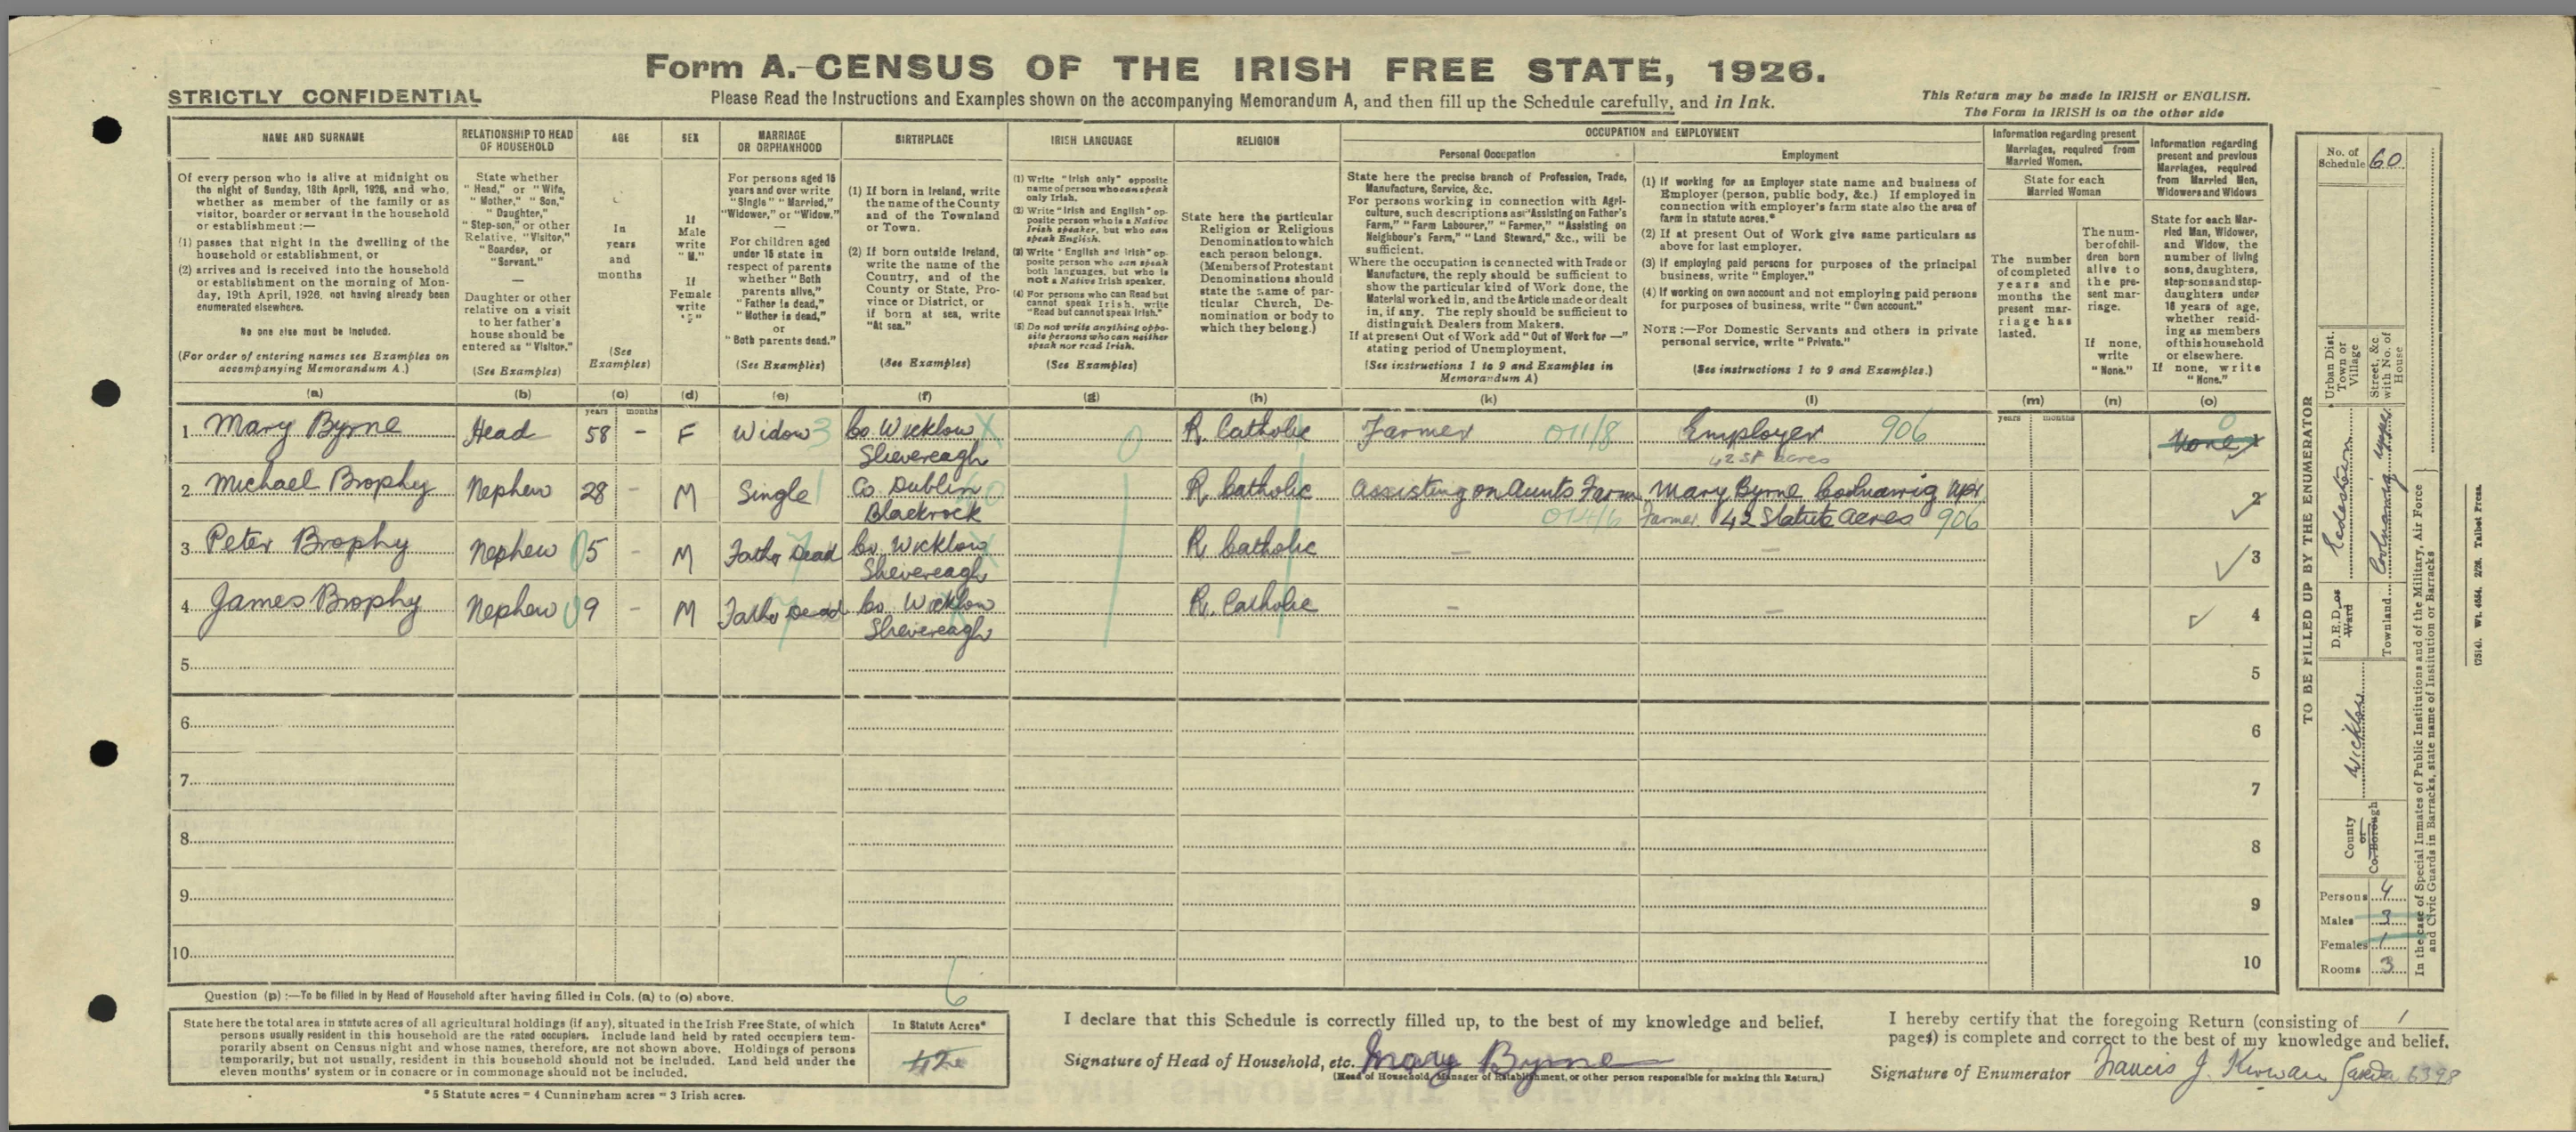 Form A.-CENSUS OF THE IRISH FREE STATE, 1926.
STRICTLY CONFIDENTIAL
Please Read the Instructions and Examples shown on the accompanying Memorandum A, and then fill up the Schedule carefully, and in Ink.
This Return may be made in IRISH or ENGLISH.
The Form in IRISH is on the other side
NAME AND SURNAME
Of every person who is alive at midnight on
the night of Sunday, 18th April, 1926, and who,
whether as member of the family or as
visitor, boarder or servant in the household
or establishment :—
(1) passes that night in the dwelling of the
household or establishment, or
(2) arrives and is received into the household
or establishment on the morning of Mon-
day, 19th April, 1926, not having already been
enumerated elsewhere.
No one else must be included.
(For order of entering names see Examples on
accompanying Memorandum A.)
(a)
RELATIONSHIP TO HEAD
OF HOUSEHOLD
State whether
"Head," or "Wife,
"Mother," "Son,"
"Daughter,"
"Step-son," or other
Relative, "Visitor,"
"Boarder, or
"Servant."
Daughter or other
relative on a visit
to her father's
house should be
entered as "Visitor."
(See Examples)
(b)
AGE
In
years
and
months
(See
Examples)
(c)
SEX
If
Male
write
"M."
If
Female
write
"F"
(d)
MARRIAGE
OR ORPHANHOOD
For persons aged 15
years and over write
"Single" "Married,"
"Widower," or "Widow."
For children aged
under 15 state in
respect of parents
whether "Both
parents alive,"
"Father is dead,"
"Mother is dead,"
or
"Both parents dead."
(See Examples)
(e)
BIRTHPLACE
(1) If born in Ireland, write
the name of the County
and of the Townland
or Town.
(2) If born outside Ireland,
write the name of the
Country, and of the
County or State, Pro-
vince or District, or
if born at sea, write
"At sea."
(See Examples)
(f)
IRISH LANGUAGE
(1) Write "Irish only" opposite
name of person who can speak
only Irish.
(2) Write "Irish and English" op-
posite person who is a Native
Irish speaker, but who can
speak English.
(3) Write "English and Irish" op-
posite person who can speak
both languages, but who is
not a Native Irish speaker.
(4) For persons who can Read but
cannot speak Irish, write
"Read but cannot speak Irish."
(5) Do not write anything oppo-
site persons who can neither
speak nor read Irish.
(See Examples)
(g)
RELIGION
State here the particular
Religion or Religious
Denomination to which
each person belongs.
(Members of Protestant
Denominations should
state the name of par-
ticular Church, De-
nomination or body to
which they belong.)
(h)
OCCUPATION and EMPLOYMENT
Personal Occupation
State here the precise branch of Profession, Trade,
Manufacture, Service, &c.
For persons working in connection with Agri-
culture, such descriptions as "Assisting on Father's
Farm," "Farm Labourer," "Farmer," "Assisting on
Neighbour's Farm," "Land Steward," &c., will be
sufficient.
Where the occupation is connected with Trade or
Manufacture, the reply should be sufficient to
show the particular kind of Work done, the
Material worked in, and the Article made or dealt
in, if any. The reply should be sufficient to
distinguish Dealers from Makers.
If at present Out of Work add "Out of Work for —"
stating period of Unemployment.
(See instructions 1 to 9 and Examples in
Memorandum A)
(k)
Employment
(1) If working for an Employer state name and business of
Employer (person, public body, &c.) If employed in
connection with employer's farm state also the area of
farm in statute acres.*
(2) If at present Out of Work give same particulars as
above for last employer.
(3) If employing paid persons for purposes of the principal
business, write "Employer."
(4) If working on own account and not employing paid persons
for purposes of business, write "Own account."
NOTE :—For Domestic Servants and others in private
personal service, write "Private."
(See instructions 1 to 9 and Examples.)
(l)
Information regarding present
Marriages, required from
Married Women.
State for each
Married Woman
The number
of completed
years and
months the
present mar-
riage has
lasted.
(m)
The num-
ber of chil-
dren born
alive to
the pre-
sent mar-
riage.
If none,
write
"None."
(n)
Information regarding
present and previous
Marriages, required
from Married Men,
Widowers and Widows
State for each Mar-
ried Man, Widower,
and Widow, the
number of living
sons, daughters,
step-sons and step-
daughters under
16 years of age,
whether resid-
ing as members
of this household
or elsewhere.
If none, write
"None."
(o)
years months
years months
1 Mary Byrne Head 58 - F Widow 3 Co. Wicklow X 0 R. Catholic Farmer 011/8 Employer 906 None 0
Slievereagh 42 St acres
2 Michael Brophy Nephew 28 - M Single 1 Co Dublin R. Catholic Assisting on Aunts Farm Mary Byrne Coolnarrig upr 2
Blackrock 014/6 Farmer 42 Statute Acres 906
3 Peter Brophy Nephew 5 - M Father Dead Co. Wicklow R. Catholic - - 3
Slievereagh
4 James Brophy Nephew 9 - M Father Dead Co. Wicklow R. Catholic - - 4
Slievereagh
5 5
6 6
7 7
8 8
9 9
10 10
Question (p) :—To be filled in by Head of Household after having filled in Cols. (a) to (o) above.
6
State here the total area in statute acres of all agricultural holdings (if any), situated in the Irish Free State, of which
persons usually resident in this household are the rated occupiers. Include land held by rated occupiers tem-
porarily absent on Census night and whose names, therefore, are not shown above. Holdings of persons
temporarily, but not usually, resident in this household should not be included. Land held under the
eleven months' system or in conacre or in commonage should not be included.
In Statute Acres*
42
*5 Statute acres = 4 Cunningham acres = 3 Irish acres.
I declare that this Schedule is correctly filled up, to the best of my knowledge and belief.
Signature of Head of Household, etc. Mary Byrne
(Head of Household, Manager of Establishment, or other person responsible for making this Return.)
I hereby certify that the foregoing Return (consisting of 1
pages) is complete and correct to the best of my knowledge and belief.
Signature of Enumerator Francis J. Kirwan Garda 6398
TO BE FILLED UP BY THE ENUMERATOR
No. of
Schedule 60
Urban Dist.
Town or
Village
Street, &c.
with No. of
House
D.E.D. or
Ward
Townland
upper
County
or
Co. Borough
Wicklow
Persons 4
Males 3
Females 1
Rooms 3
In the case of Special Inmates of Public Institutions and of the Military, Air Force
and Civic Guards in Barracks, state name of Institution or Barracks
(7514). Wt. 4654. 2/26. Talbot Press.